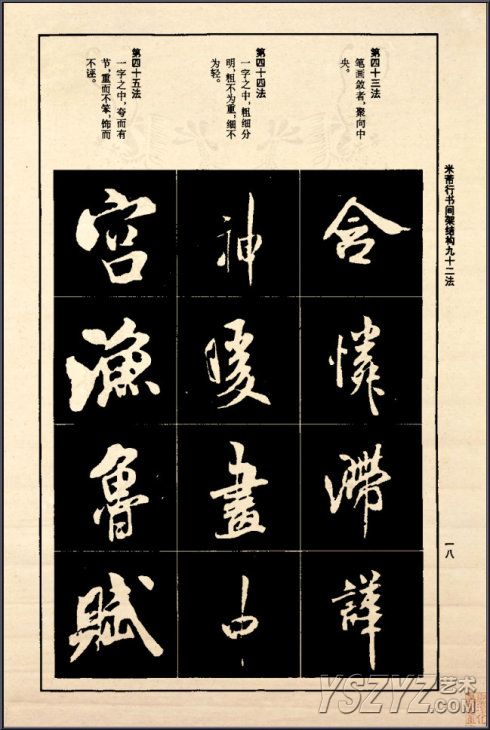 米芾行书间架结构九十二法
一八
第四十三法
笔画敛者，聚向中
央。
第四十四法
一字之中，粗细分
明，粗不为重，细不
为轻。
第四十五法
一字之中，夸而有
节，重而不笨，饰而
不诬。
含憐滯
神暖畫中
宫漁魯賦
YSZYZ艺术
.COM